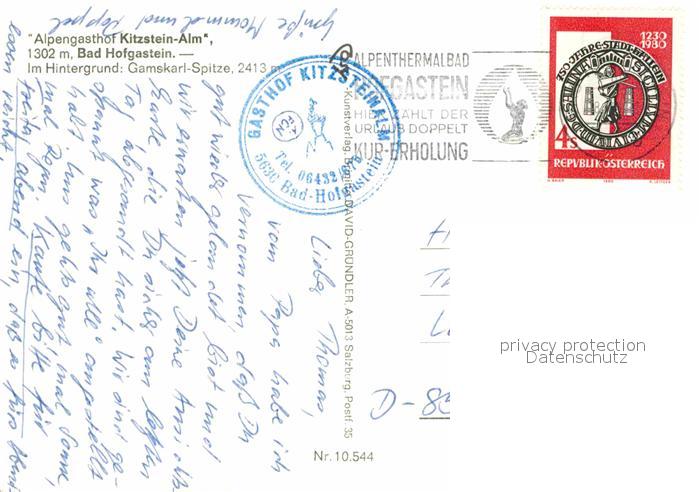 "Alpengasthof Kitzstein-Alm",
1302 m, Bad Hofgastein. —
Im Hintergrund: Gamskarl-Spitze, 2413 m
GASTHOF KITZSTEINALM
Tel. 06432
5630 Bad-Hofgastein
ALPENTHERMALBAD
HOFGASTEIN
HIER ZÄHLT DER
URLAUB DOPPELT
KUR-ERHOLUNG
1230
1980
750 JAHRE STADT HALLEIN
4 S
REPUBLIK ÖSTERREICH
DAVID-GRÜNDLER, A-5013 Salzburg, Postf. 35
Nr. 10.544
Lieber Thomas,
vom Papa habe ich
vernommen, daß Du
gut wieder gelandet bist und
wir warten jetzt Deine Ansichts
Karte, die Du sicher am letzten
Tag abgesandt hast. Wir sind ge-
spannt was "Ihr alle" angestellt
habt. Uns geht's gut, mal Sonne,
mal Regen. Kaufe bitte für
abend ein, daß es bis
reicht.
Grüße Mammal und
D-85
privacy protection
Datenschutz